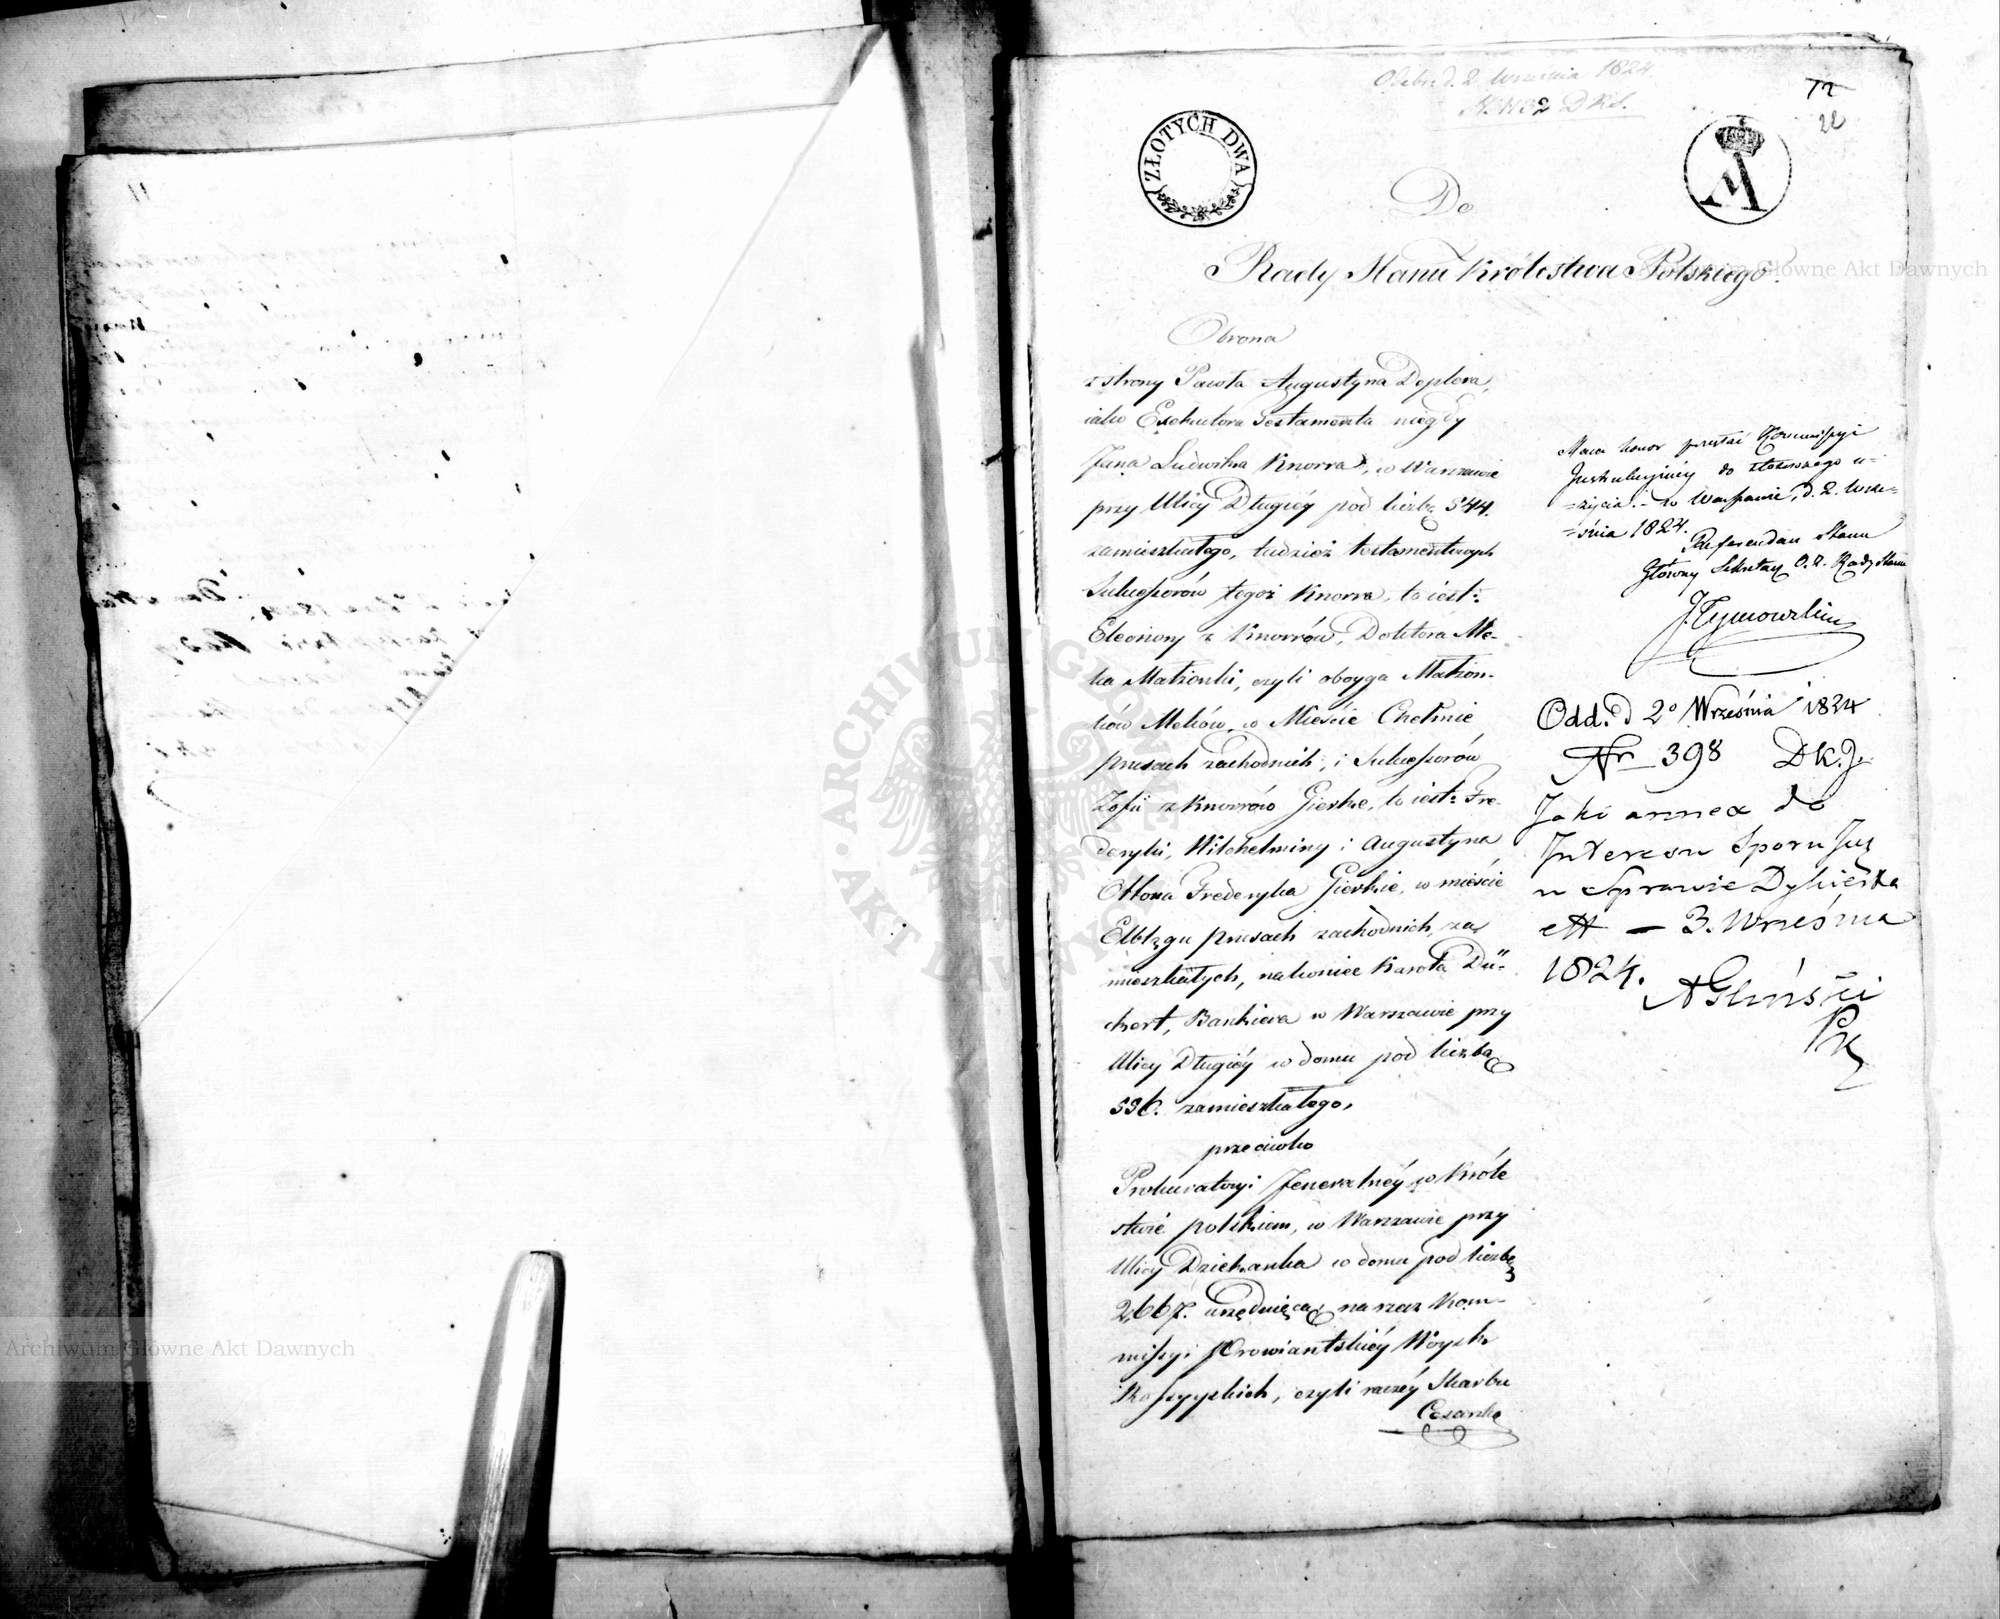 Odebr. d. 2 Września 1824.
N. 1132 DRS.
72
22
ZŁOTYCH DWA
Do
Rady Stanu Królestwa Polskiego.
Obrona
z strony Pawła Augustyna Deplera,
iako Exekutora Testamentu niegdy
Jana Ludwika Knorra, w Warszawie
przy Ulicy Długiéy pod liczbą 544.
zamieszkałego, tudzież testamentowych
Sukcessorów tegoż Knorra, to iest:
Eleonory z Knorrów, Doktora Me-
ka Małżonki, czyli oboyga Małżon-
ków Meków, w Mieście Chełmie
prusach zachodnich, i Sukcessorów
Zofii z Knorrów Gierke, to iest: Fre-
deryki, Wilhelminy i Augustyna
Ottona Frederyka Gierkie, w mieście
Elblągu prusach zachodnich za-
mieszkałych, nakoniec Karola Dü-
ckert, Bankiera w Warszawie przy
Ulicy Długiéy w domu pod liczbą
536. zamieszkałego,
przeciwko
Prokuratoryi Jeneralnéy w Króle
stwie polskiem, w Warszawie przy
Ulicy Dziekanka w domu pod liczbą
2,667. urzęduiącéy na rzecz Kom-
missyi Prowiantskiéy Woysk
Rossyyskich, czyli raczéy Skarbu
Cesarsko
Mam honor przesłać Kommissyi
Instrukcyinéy do stosownego u-
=życia. - w Warszawie, d. 2. Wrze-
=śnia 1824.
Referendarz Stanu
Główny Sekretarz O. Z. Rady Stanu
J. Tymowski
Odd. d 2o Września 1824
Nr 398 D.K.J.
Jako annex do
Interesu Sporu Jur.
w Sprawie Dykierta
ett - 3. Września
1824.
A Gliński
Archiwum Główne Akt Dawnych
Archiwum Główne Akt Dawnych
ARCHIWUM GŁÓWNE AKT DAWNYCH